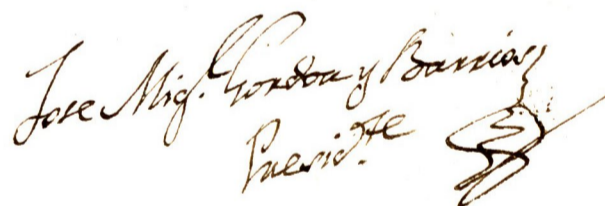 Jose Mig.l Gordoa y Barrios
Presid.te